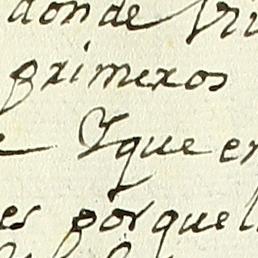 donde Vi
primeros
Yque en
es porque l